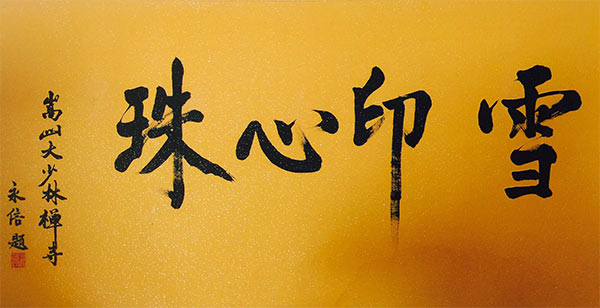 雪印心珠
嵩山大少林禅寺
永信題